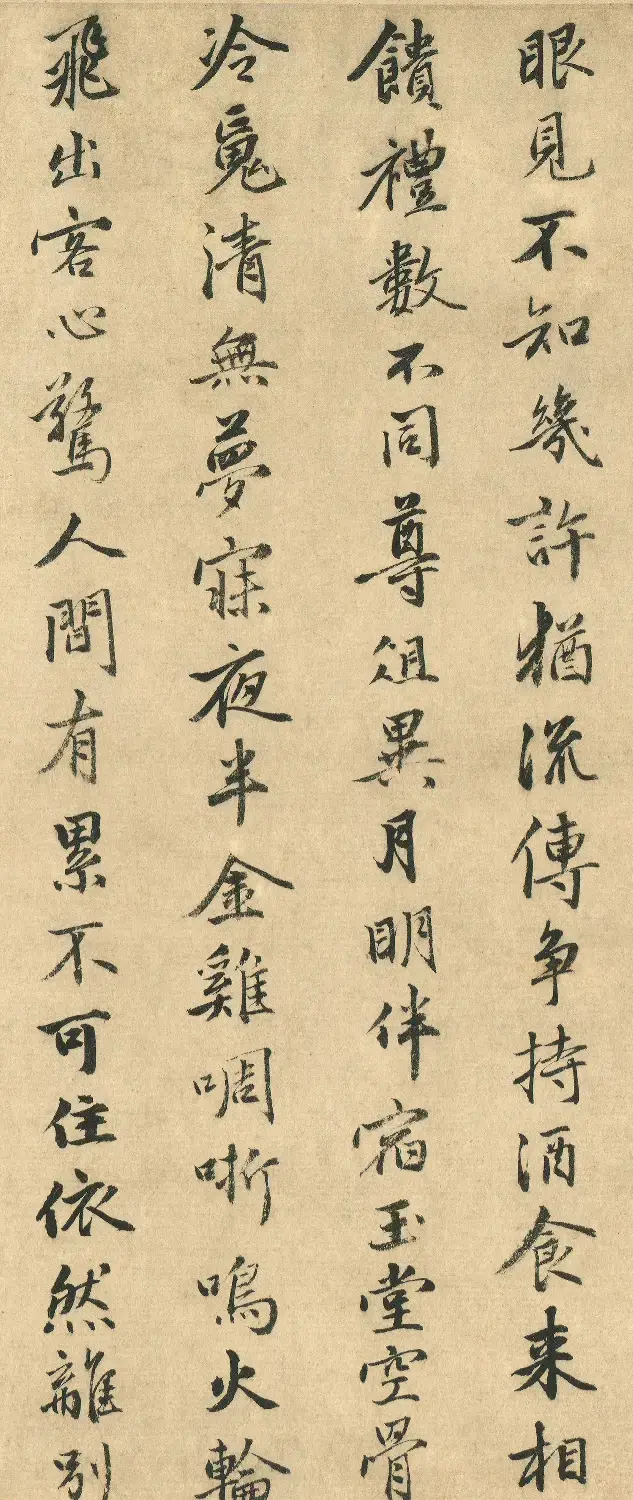 眼見不知幾許猶流傳争持酒食来相
饋禮數不同尊俎異月明伴宿玉堂空骨
冷䰟清無夢寐夜半金雞啁哳鳴火輪
飛出客心驚人間有累不可住依然離别